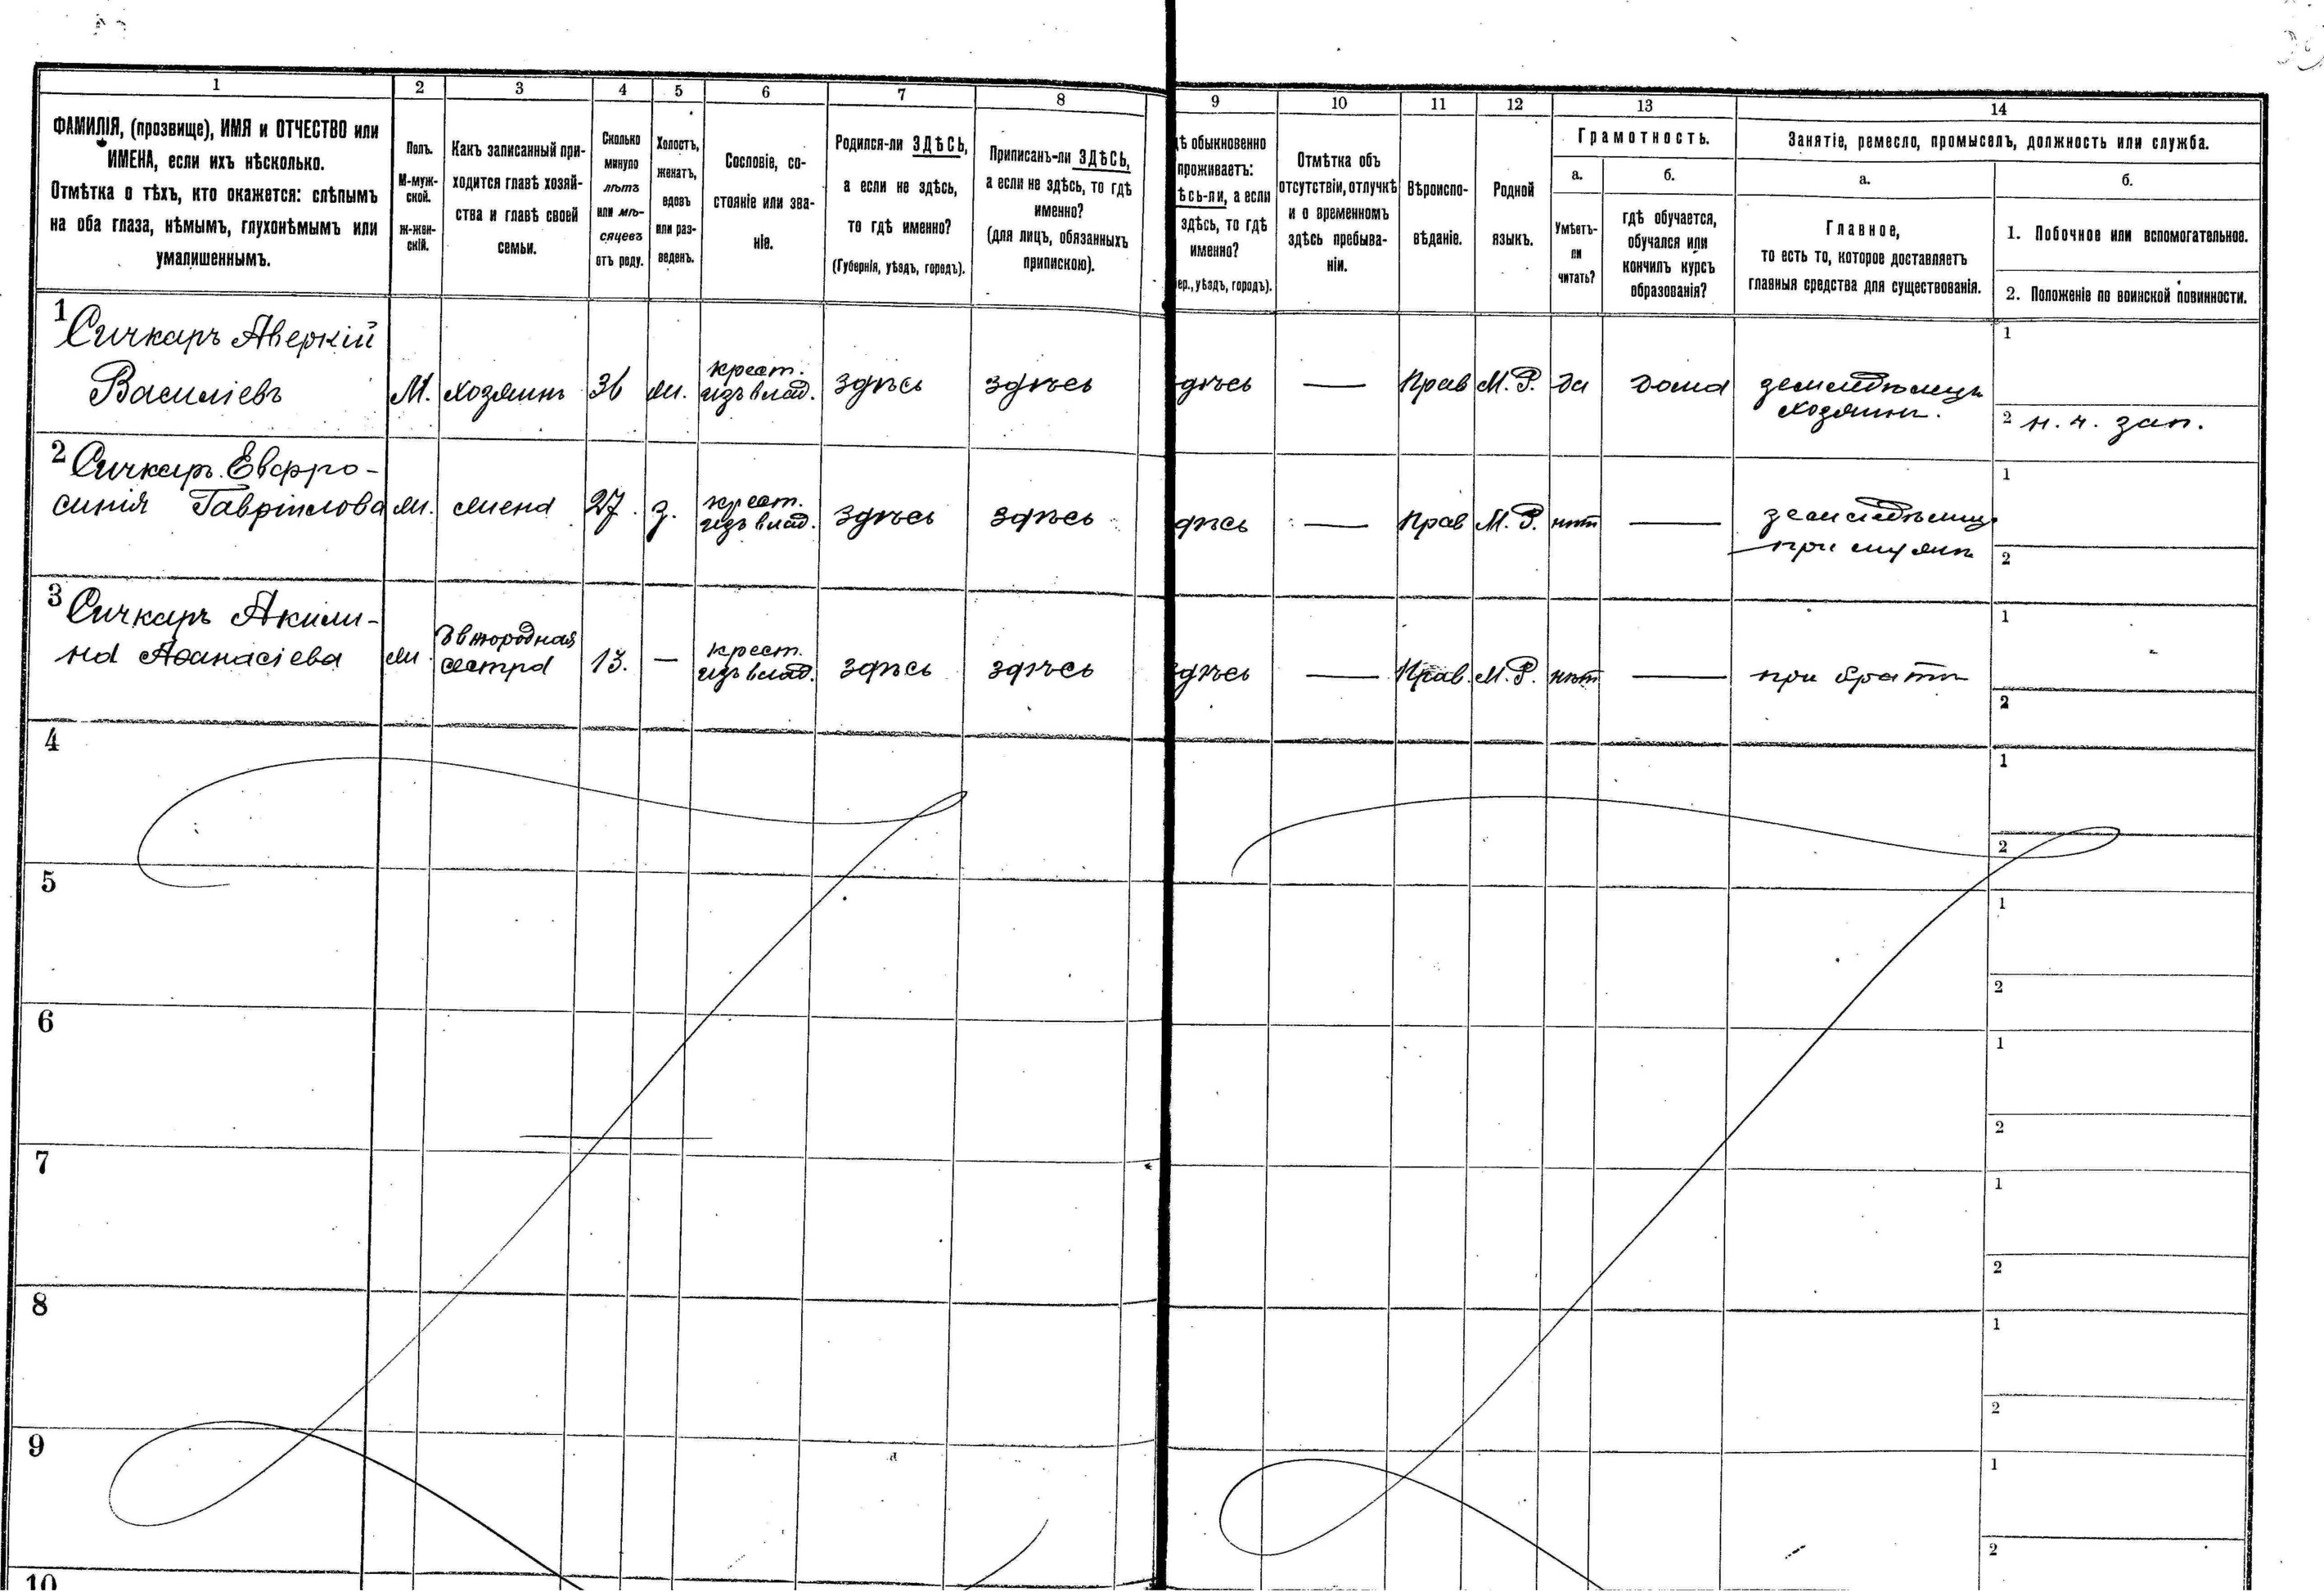 1 2 3 4 5 6 7 8 9 10 11 12 13 14
ФАМИЛІЯ, (прозвище), ИМЯ и ОТЧЕСТВО или
ИМЕНА, если ихъ нѣсколько.
Отмѣтка о тѣхъ, кто окажется: слѣпымъ
на оба глаза, нѣмымъ, глухонѣмымъ или
умалишеннымъ.
Полъ.
М-муж-
ской.
ж-жен-
скій.
Какъ записанный при-
ходится главѣ хозяй-
ства и главѣ своей
семьи.
Сколько
минуло
лѣтъ
или мѣ-
сяцевъ
отъ роду.
Холостъ,
женатъ,
вдовъ
или раз-
веденъ.
Сословіе, со-
стояніе или зва-
ніе.
Родился-ли ЗДѢСЬ,
а если не здѣсь,
то гдѣ именно?
(Губернія, уѣздъ, городъ).
Приписанъ-ли ЗДѢСЬ,
а если не здѣсь, то гдѣ
именно?
(для лицъ, обязанныхъ
припискою).
дѣ обыкновенно
проживаетъ:
ѣсь-ли, а если
здѣсь, то гдѣ
именно?
ер., уѣздъ, городъ).
Отмѣтка объ
отсутствіи, отлучкѣ
и о временномъ
здѣсь пребыва-
ніи.
Вѣроиспо-
вѣданіе.
Родной
языкъ.
Грамотность.
а.
Умѣетъ-
ли
читать?
б.
гдѣ обучается,
обучался или
кончилъ курсъ
образованія?
Занятіе, ремесло, промыселъ, должность или служба.
а.
Главное,
то есть то, которое доставляетъ
главныя средства для существованія.
б.
1. Побочное или вспомогательное.
2. Положеніе по воинской повинности.
1 Сичкаръ Аверкій
Василіевъ
М. хозяинъ 36 ж.
крест.
изъ влад.
здѣсь здѣсь дѣсь — Прав М. Р. да дома
земледѣлецъ
хозяинъ.
1
2 н. ч. зап.
2 Сичкаръ Евфро-
синія Гавріилова
ж. жена 27. з.
крест.
изъ влад.
здѣсь здѣсь дѣсь — Прав М. Р. нѣт —
при мужѣ
1
2
3 Сичкаръ Акили-
на Аѳанасіева
ж.
двоюродная
сестра
13. —
крест.
изъ влад.
здѣсь здѣсь здѣсь — Прав. М. Р. нѣт — при братѣ
1
2
4
1
2
5
1
2
6
1
2
7
1
2
8
1
2
9
1
2
10